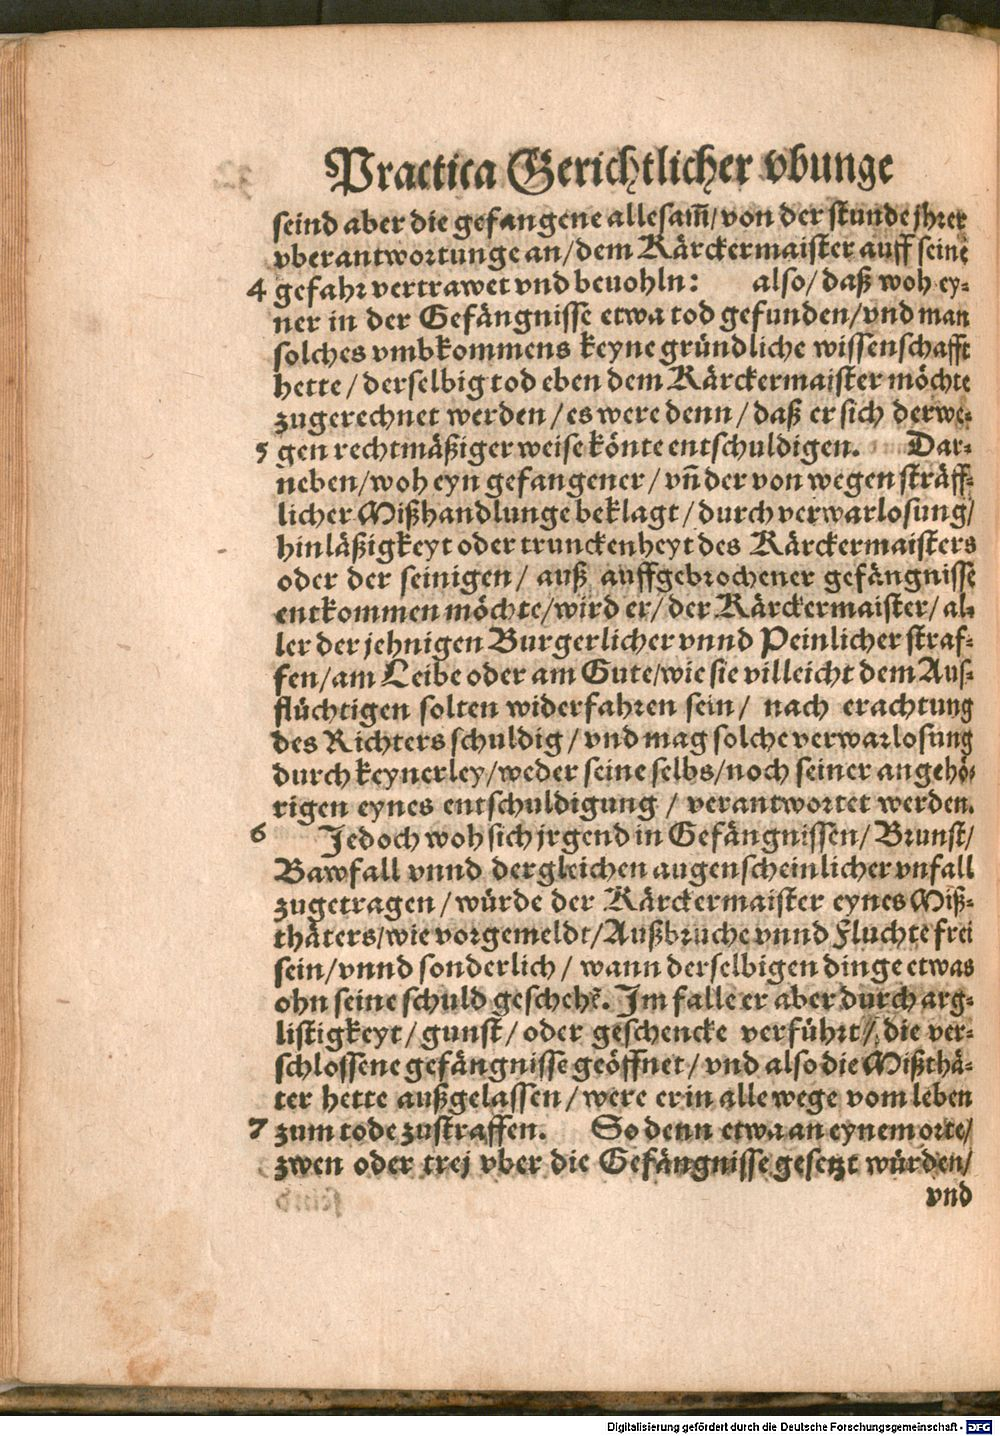 Practica Gerichtlicher vbunge
seind aber die gefangene allesam̃/ von der stunde jhrer
vberantwortunge an/ dem Kärckermaister auff seine
4 gefahr vertrawet vnd beuohln: also/ daß woh ey⸗
ner in der Gefängnisse etwa tod gefunden/ vnd man
solches vmbkommens keyne gründliche wissenschafft
hette/ derselbig tod eben dem Kärckermaister möchte
zugerechnet werden/ es were denn/ daß er sich derwe⸗
5 gen rechtmäßiger weise könte entschuldigen. Dar⸗
neben/ woh eyn gefangener/ vñ der von wegen sträff⸗
licher Mißhandlunge beklagt/ durch verwarlosung/
hinläßigkeyt oder trunckenheyt des Kärckermaisters
oder der seinigen/ auß auffgebrochener gefängnisse
entkommen möchte/ wird er/ der Kärckermaister/ al⸗
ler der jehnigen Burgerlicher vnnd Peinlicher straf⸗
fen/ am Leibe oder am Gute/ wie sie villeicht dem Aus⸗
flüchtigen solten widerfahren sein/ nach erachtung
des Richters schuldig/ vnd mag solche verwarlosung
durch keynerley/ weder seine selbs/ noch seiner angehö⸗
rigen eynes entschuldigung/ verantwortet werden.
6 Jedoch woh sich jrgend in Gefängnissen/ Brunst/
Bawfall vnnd dergleichen augenscheinlicher vnfall
zugetragen/ würde der Kärckermaister eynes Miß⸗
thäters/ wie vorgemeldt/ Außbruche vnnd Fluchte frei
sein/ vnnd sonderlich/ wann derselbigen dinge etwas
ohn seine schuld geschehẽ. Im falle er aber durch arg⸗
listigkeyt/ gunst/ oder geschencke verführt/ die ver⸗
schlossene gefängnisse geöffnet/ vnd also die Mißthä⸗
ter hette außgelassen/ were er in alle wege vom leben
7 zum tode zustraffen. So denn etwa an eynem orte/
zwen oder trej vber die Gefängnisse gesetzt würden/
vnd
Digitalisierung gefördert durch die Deutsche Forschungsgemeinschaft - DFG